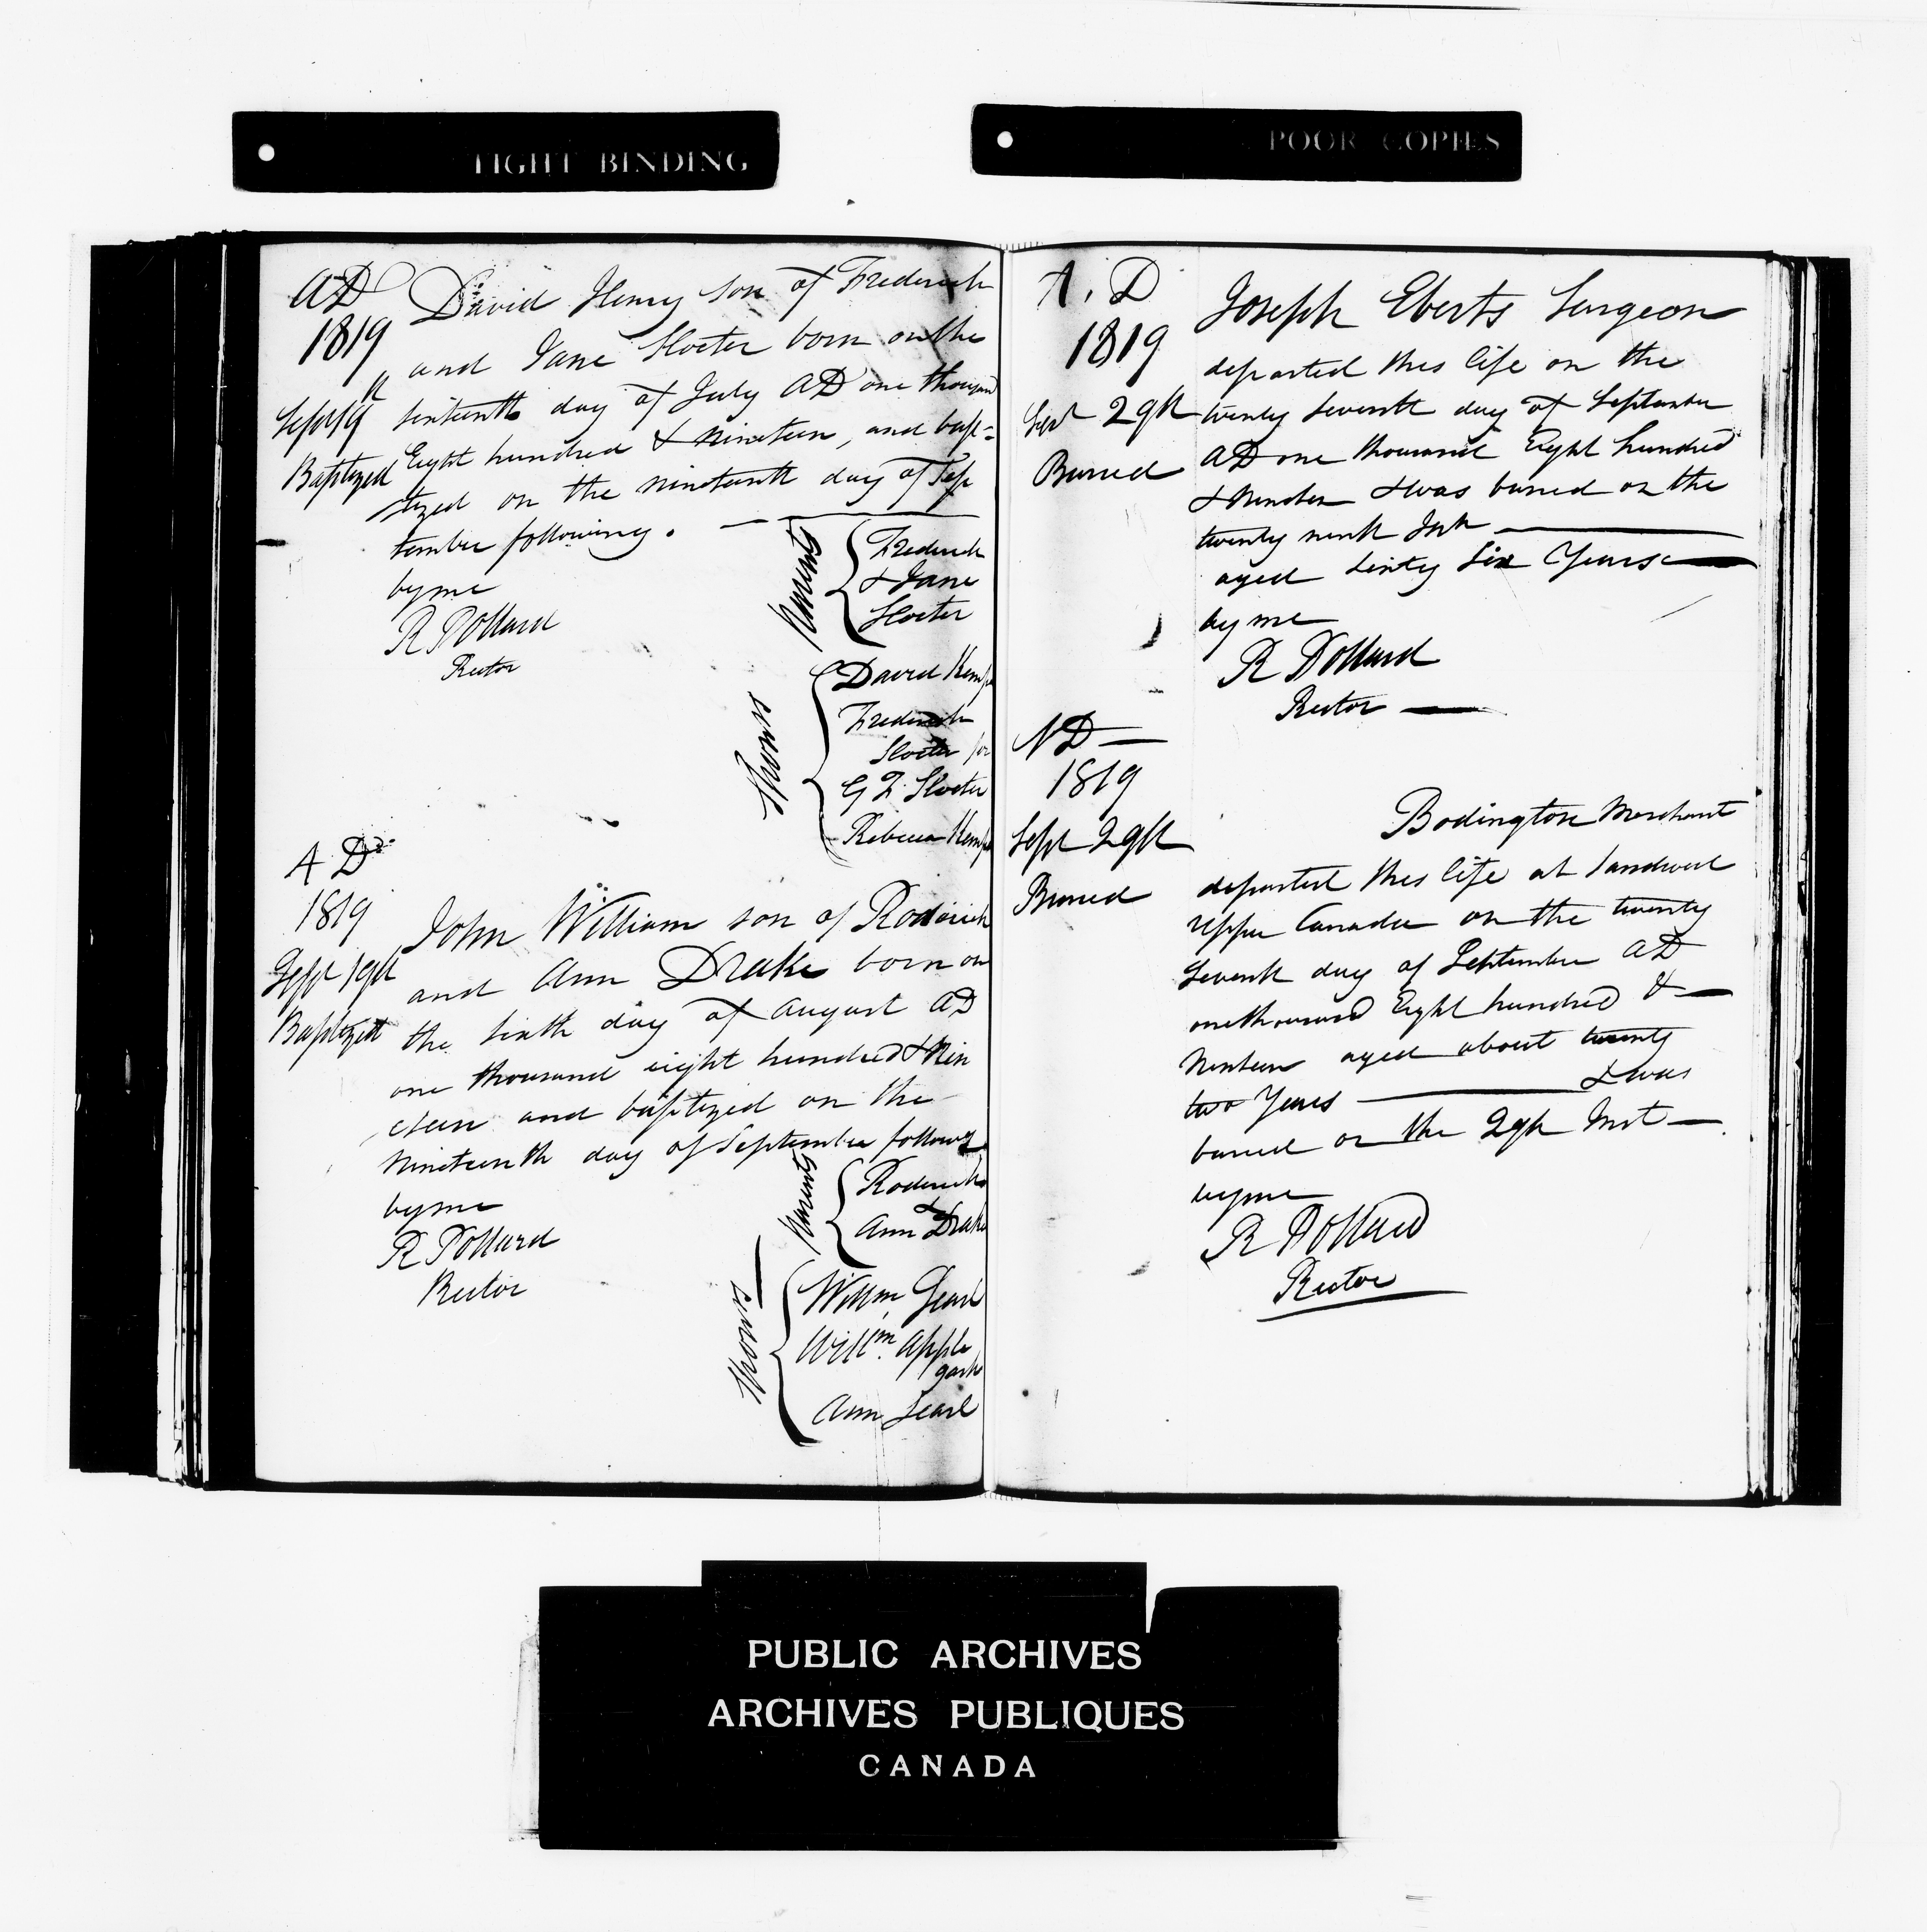 TIGHT BINDING
POOR COPIES
AD
1819
Sept 19th
Baptized
David Henry son of Frederick
and Jane Sloeter born on the
sixteenth day of July AD one thousand
Eight hundred & nineteen, and bap=
tized on the nineteenth day of Sep
tember following.
by me
R Pollard
Rector
Parents
Frederick
& Jane
Sloeter
Sponsrs
David Kemp
Frederick
Sloeter for
G F Sloeter
Rebecca Kemp
A D
1819
Sept 19th
Baptized
John William son of Roderick
and Ann Drake born on
the sixth day of August AD
one thousand eight hundred & Nin
eteen and baptized on the
Nineteenth day of September following
by me
R Pollard
Rector
Parents
Roderick
&
Ann Drake
Sponsrs
Willm Searl
Willm Apple
garth
Ann Searl
A. D
1819
Sept 29th
Buried
Joseph Eberts Surgeon
departed this life on the
twenty seventh day of September
AD one thousand Eight hundred
& nineteen & was buried on the
twenty ninth Inst
aged Sixty Six Years
by me
R Pollard
Rector
AD
1819
Sept 29th
Buried
Bodington Merchant
departed this life at Sandwich
Upper Canada on the twenty
Seventh day of September AD
one thousand Eight hundred &
Nineteen aged about twenty
two Years & was
buried on the 29th Inst
by me
R Pollard
Rector
PUBLIC ARCHIVES
ARCHIVES PUBLIQUES
CANADA